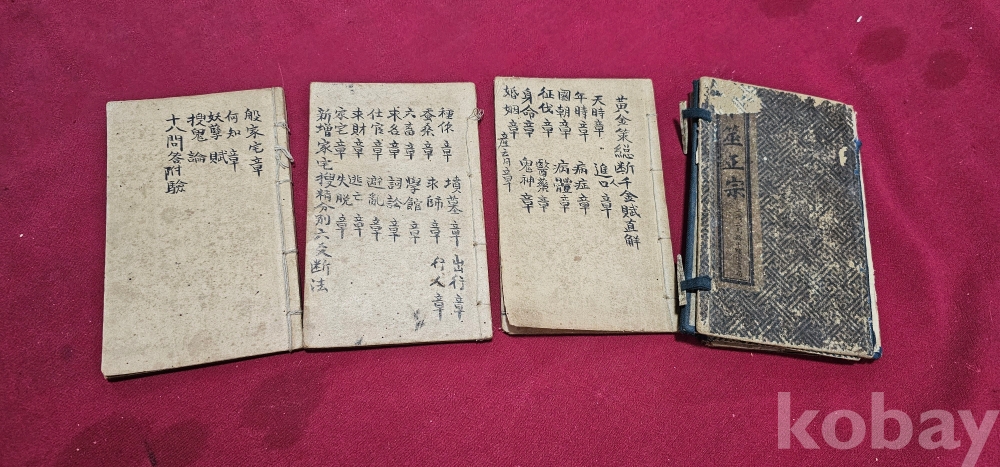 筮正宗
黃金策緫断千金賦直解
天時章 · 口章
年時章 病症章
國朝章 病體章
征伐章 醫藥章
身命章 鬼神章
婚姻章
種作章 墳墓章 出行章
蚕桑章 求師章 行人章
六畜章 學館章
求名章 詞訟章
仕官章 避亂章
求財章 逃亡章
家宅章 失脫章
新增家宅搜精分別六爻断法
般家宅章
何知章
妖孽賦
搜鬼論
十八問答附驗
kobay